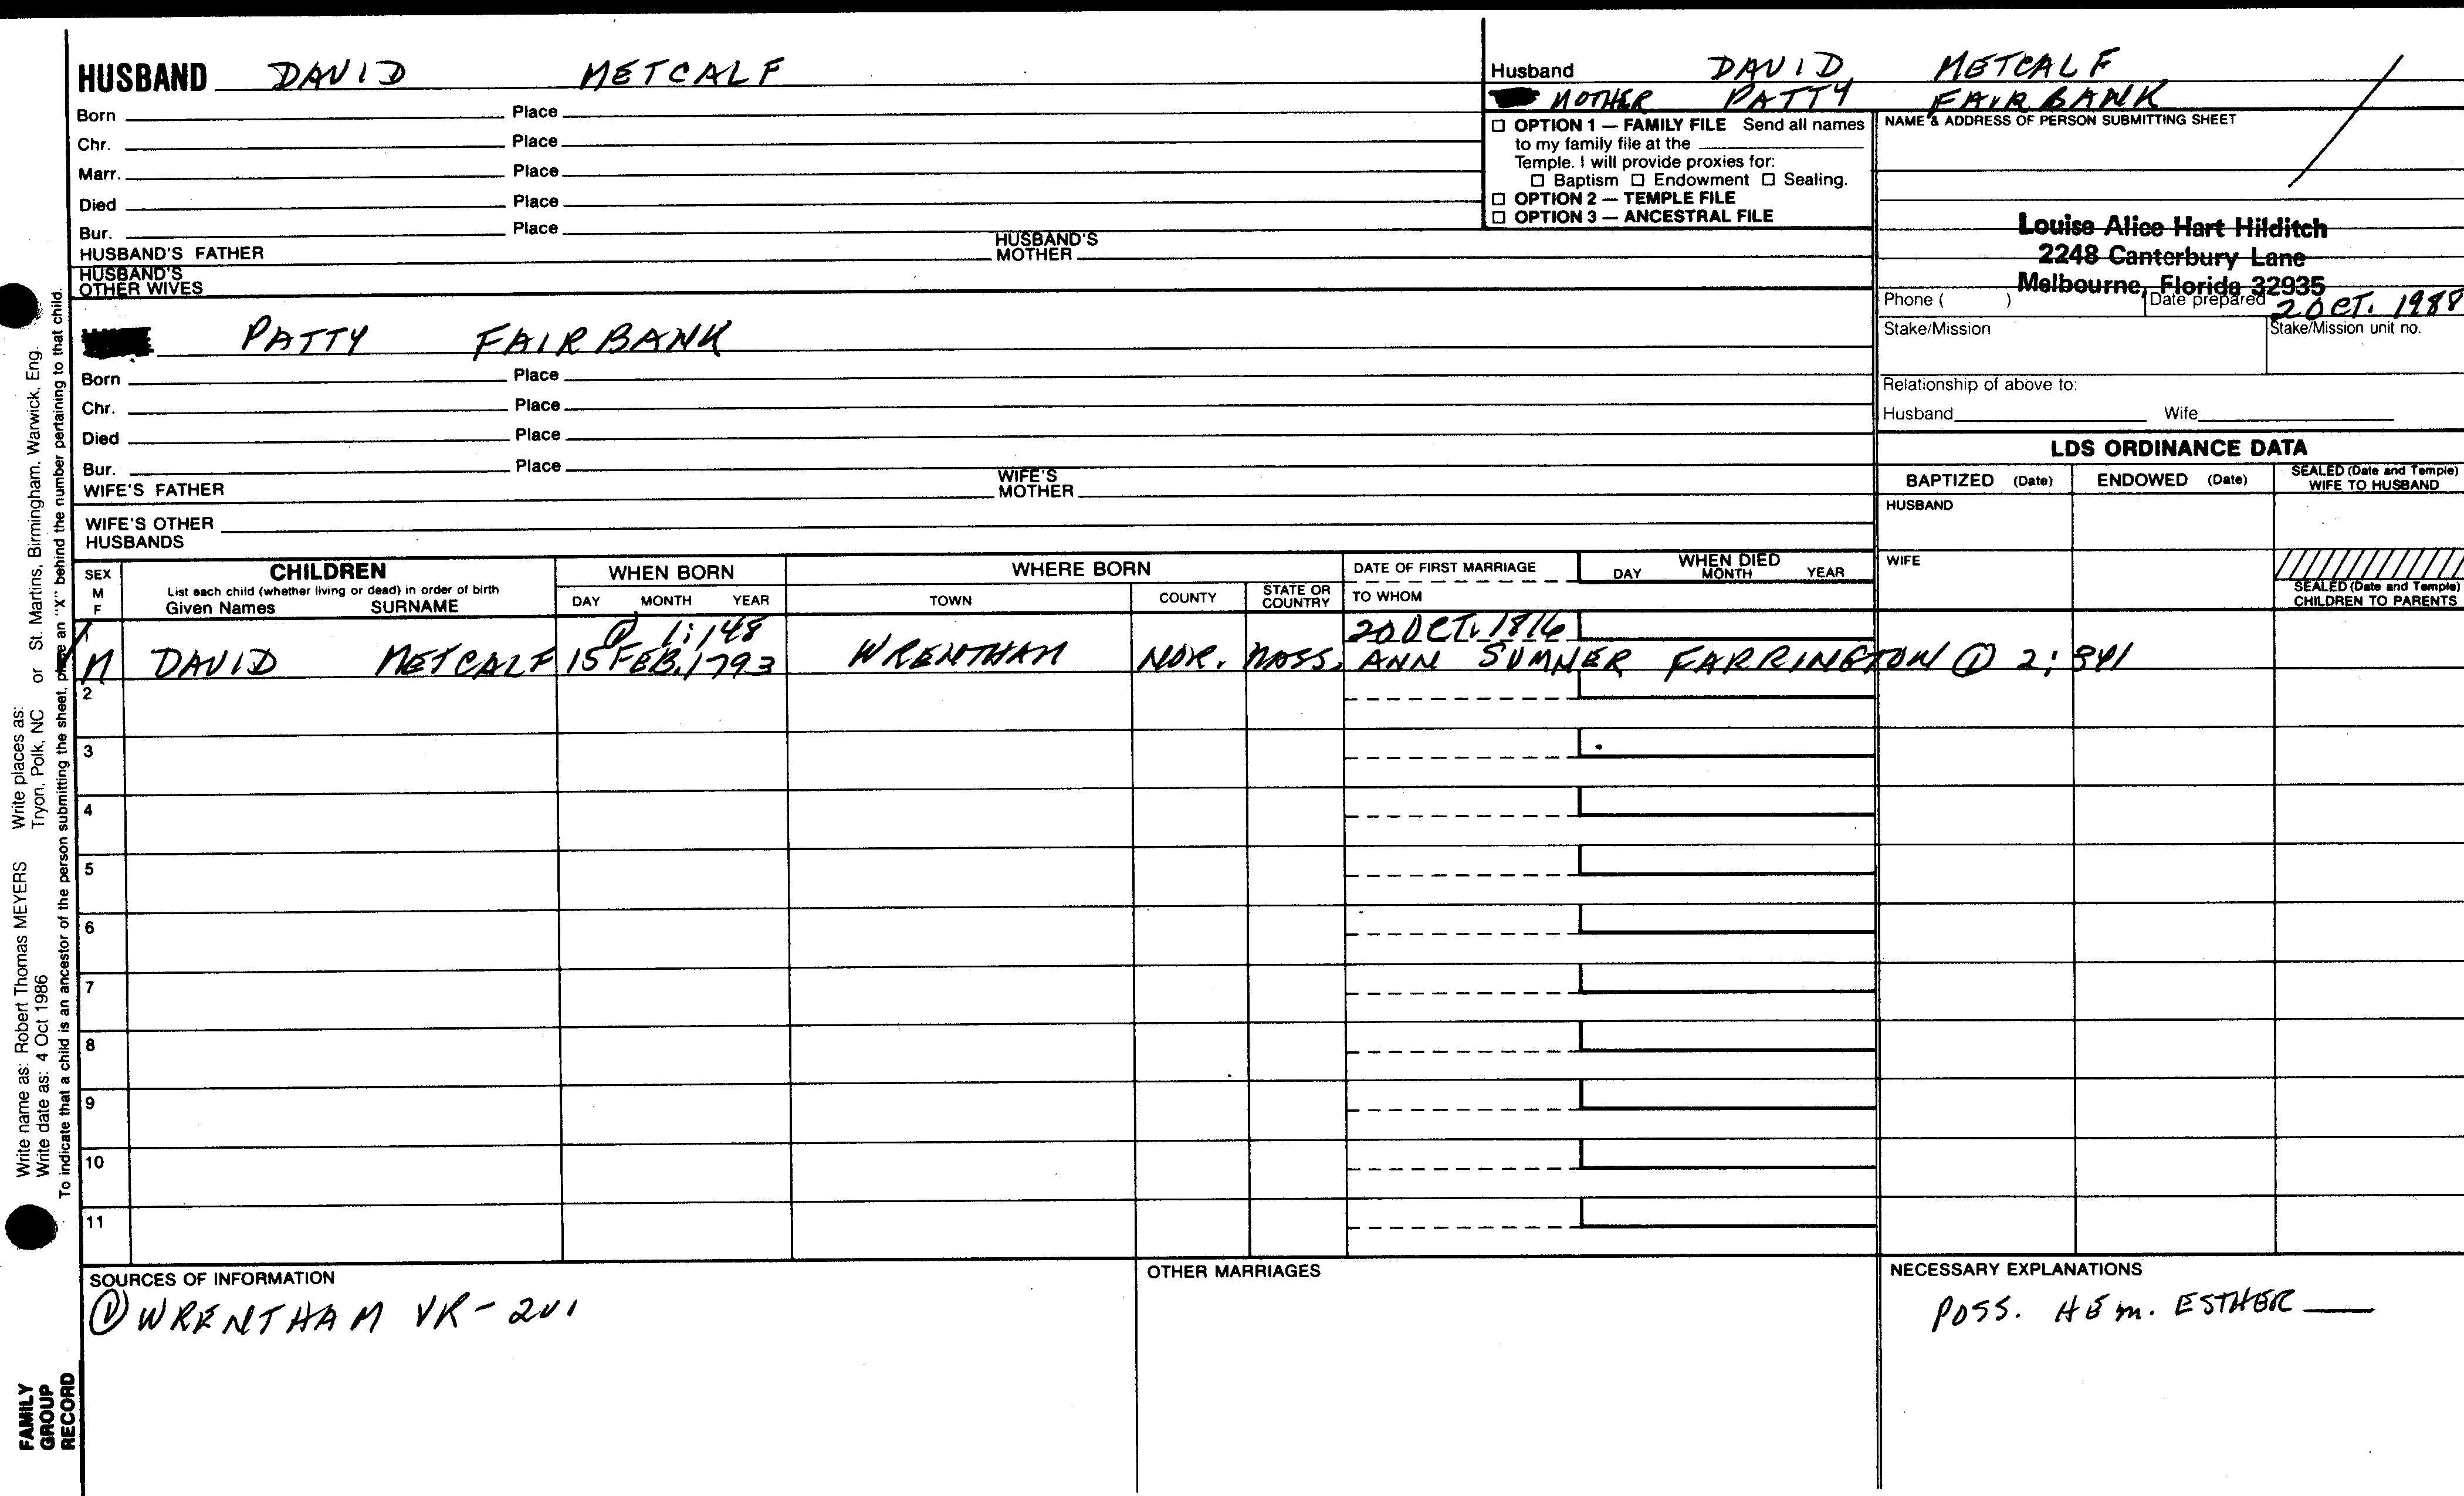 HUSBAND DAVID METCALF
Born Place
Chr. Place
Marr. Place
Died Place
Bur. Place
HUSBAND'S FATHER HUSBAND'S MOTHER
HUSBAND'S OTHER WIVES
PATTY FAIRBANK
Born Place
Chr. Place
Died Place
Bur. Place
WIFE'S FATHER WIFE'S MOTHER
WIFE'S OTHER HUSBANDS
Husband DAVID METCALF
MOTHER PATTY FAIRBANK
☐ OPTION 1 — FAMILY FILE Send all names
to my family file at the
Temple. I will provide proxies for:
☐ Baptism ☐ Endowment ☐ Sealing.
☐ OPTION 2 — TEMPLE FILE
☐ OPTION 3 — ANCESTRAL FILE
NAME & ADDRESS OF PERSON SUBMITTING SHEET
Louise Alice Hart Hilditch
2248 Canterbury Lane
Melbourne, Florida 32935
Phone ( ) Date prepared 2 OCT. 1988
Stake/Mission Stake/Mission unit no.
Relationship of above to:
Husband Wife
LDS ORDINANCE DATA
BAPTIZED (Date) ENDOWED (Date) SEALED (Date and Temple) WIFE TO HUSBAND
HUSBAND
WIFE
SEALED (Date and Temple) CHILDREN TO PARENTS
SEX M F
CHILDREN
List each child (whether living or dead) in order of birth
Given Names SURNAME
WHEN BORN
DAY MONTH YEAR
WHERE BORN
TOWN COUNTY STATE OR COUNTRY
DATE OF FIRST MARRIAGE
TO WHOM
WHEN DIED
DAY MONTH YEAR
1 ① 1:148 20 OCT. 1816
M DAVID METCALF 15 FEB. 1793 WRENTHAM NOR. MASS. ANN SUMNER FARRINGTON ① 2:341
2
3
4
5
6
7
8
9
10
11
SOURCES OF INFORMATION
① WRENTHAM VR - 201
OTHER MARRIAGES
NECESSARY EXPLANATIONS
POSS. HE m. ESTHER
Write name as: Robert Thomas MEYERS Write places as:
Write date as: 4 Oct 1986 Tryon, Polk, NC or St. Martins, Birmingham, Warwick, Eng.
To indicate that a child is an ancestor of the person submitting the sheet, place an "X" behind the number pertaining to that child.
FAMILY
GROUP
RECORD